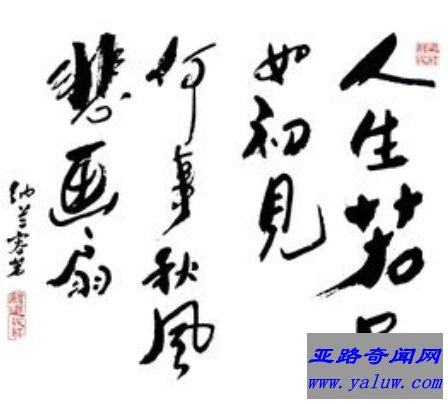 人生若
如初見
何事秋风
悲画扇
纳兰容若
亚路奇闻网
www.yaluw.com